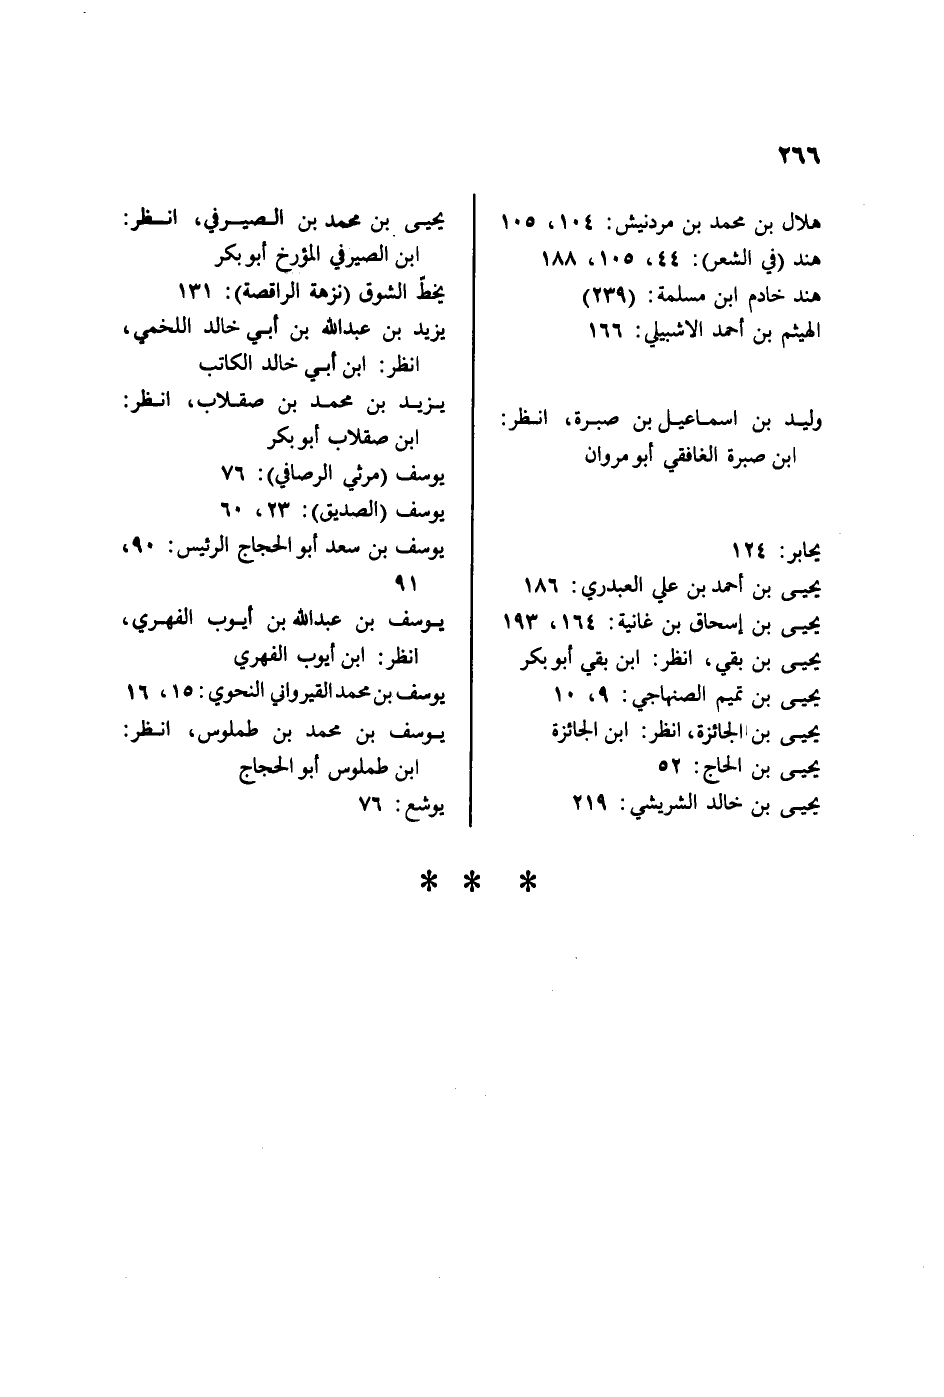 ٢٦٦
هلال بن محمد بن مردنيش: ١٠٤، ١٠٥
هند (في الشعر): ٤٤، ١٠٥، ١٨٨
هند خادم ابن مسلمة: (٢٣٩)
الهيثم بن أحمد الاشبيلي: ١٦٦
وليد بن اسماعيل بن صبرة، انظر:
ابن صبرة الغافقي أبو مروان
يحابر: ١٢٤
يحيى بن أحمد بن علي العبدري: ١٨٦
يحيى بن إسحاق بن غانية: ١٦٤، ١٩٣
يحيى بن بقي، انظر: ابن بقي أبو بكر
يحيى بن تميم الصنهاجي: ٩، ١٠
يحيى بن الجائزة، انظر: ابن الجائزة
يحيى بن الحاج: ٥٢
يحيى بن خالد الشريشي: ٢١٩
يحيى بن محمد بن الصيرفي، انظر:
ابن الصيرفي المؤرخ أبو بكر
يخطّ الشوق (نزهة الراقصة): ١٣١
يزيد بن عبدالله بن أبي خالد اللخمي،
انظر: ابن أبي خالد الكاتب
يزيد بن محمد بن صقلاب، انظر:
ابن صقلاب أبو بكر
يوسف (مرثي الرصافي): ٧٦
يوسف (الصديق): ٢٣، ٦٠
يوسف بن سعد أبو الحجاج الرئيس: ٩٠،
٩١
يوسف بن عبدالله بن أيوب الفهري،
انظر: ابن أيوب الفهري
يوسف بن محمد القيرواني النحوي: ١٥، ١٦
يوسف بن محمد بن طملوس، انظر:
ابن طملوس أبو الحجاج
يوشع: ٧٦
* * *